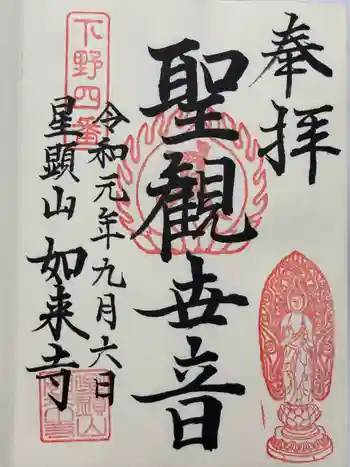 奉拝
聖観世音
令和元年九月六日
星顕山 如来寺
下野四番